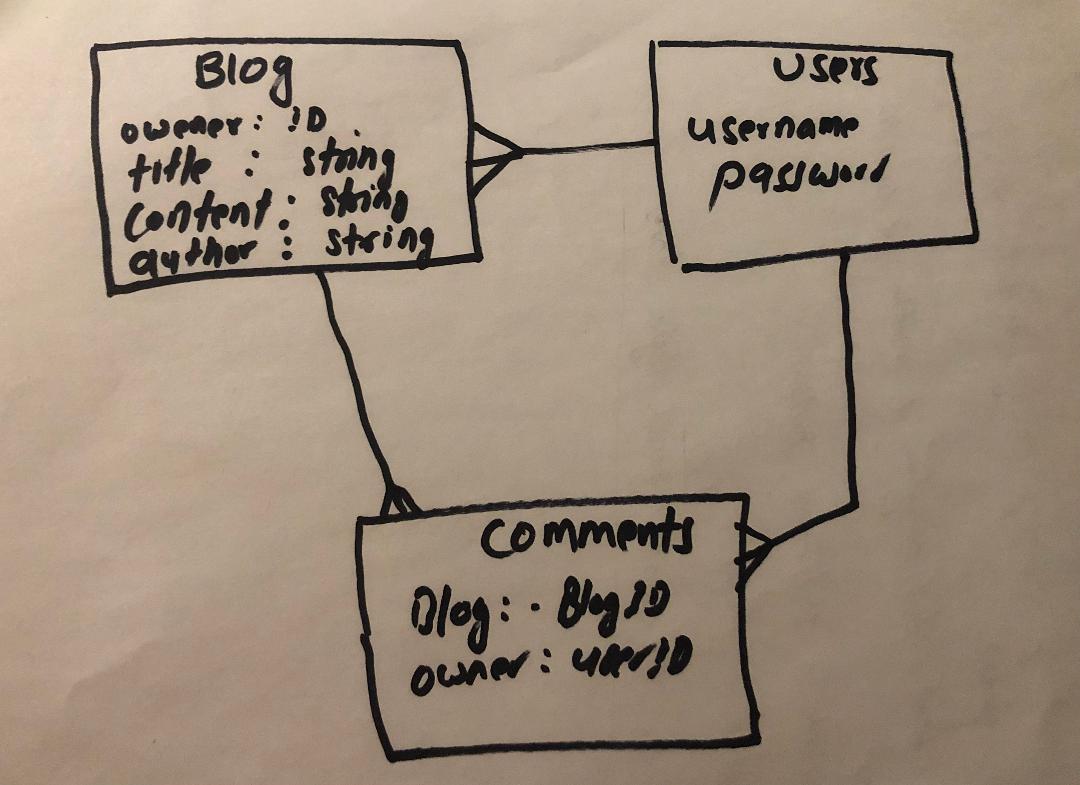 Blog
owener: ID
title : string
content: string
auther : string
users
username
password
comments
Blog: BlogID
owner: userID